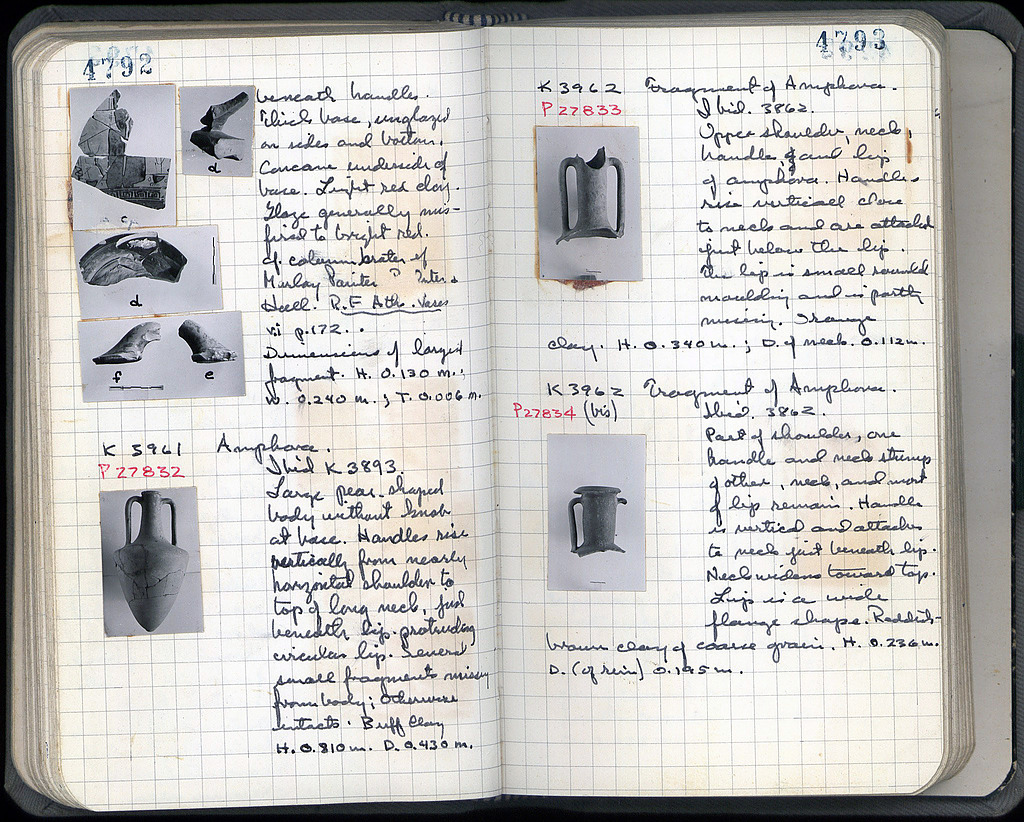 4792
beneath handles.
Thick base, unglazed
on sides and bottom.
Concave underside of
base. Light red clay.
Glaze generally mis-
fired to bright red.
cf. column krater of
Painter
Hall. R.F. Att. Vases
p. 172.
Dimensions of largest
fragment. H. 0.130 m.;
W. 0.240 m.; T. 0.006 m.
d
d
f e
K 3961 Amphora.
P 27832 Ibid K 3893.
Large pear-shaped
body without knob
at base. Handles rise
vertically from nearly
horizontal shoulder to
top of long neck, just
beneath lip. protruding
circular lip. Several
small fragments missing
from body; otherwise
intact. Buff clay
H. 0.810 m. D. 0.430 m.
4793
K 3962 Fragment of Amphora.
P 27833 Ibid. 3862.
Upper shoulder, neck,
handles, and lip
of amphora. Handles
rise vertical close
to neck and are attached
just below the lip.
The lip is small rounded
moulding and is partly
missing. Orange
clay. H. 0.340 m.; D. of neck. 0.112 m.
K 3962 Fragment of Amphora.
P 27834 (bis) Ibid. 3862.
Part of shoulder, one
handle and neck stump
of other, neck, and most
of lip remain. Handle
is vertical and attaches
to neck just beneath lip.
Neck widens toward top.
Lip is a wide
flange shape. Reddish-
brown clay of coarse grain. H. 0.236 m.
D. (of rim) 0.195 m.